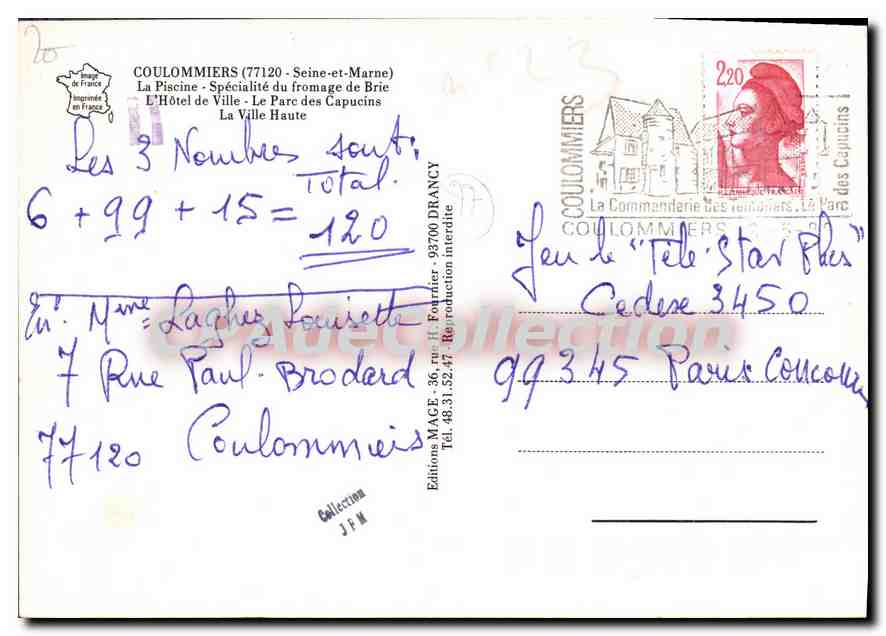 20
n° 23
Image
de France
Imprimée
en France
COULOMMIERS (77120 - Seine-et-Marne)
La Piscine - Spécialité du fromage de Brie
L'Hôtel de Ville - Le Parc des Capucins
La Ville Haute
Les 3 Nombres sont:
Total.
6 + 99 + 15 =
120
Mme Laghez Louisette
7 Rue Paul-Brodard
77120 Coulommiers
Collection
J P M
Editions MAGE - 36, rue H. Fournier - 93700 DRANCY
Tél. 48.31.52.47 - Reproduction interdite
77
2,20
COULOMMIERS
La Commanderie des Templiers. Le Parc
des Capucins
COULOMMIERS
Jeu le "Télé-Star Plus"
Cedex 3450
99345 Paris Concours
CPAdeCollection